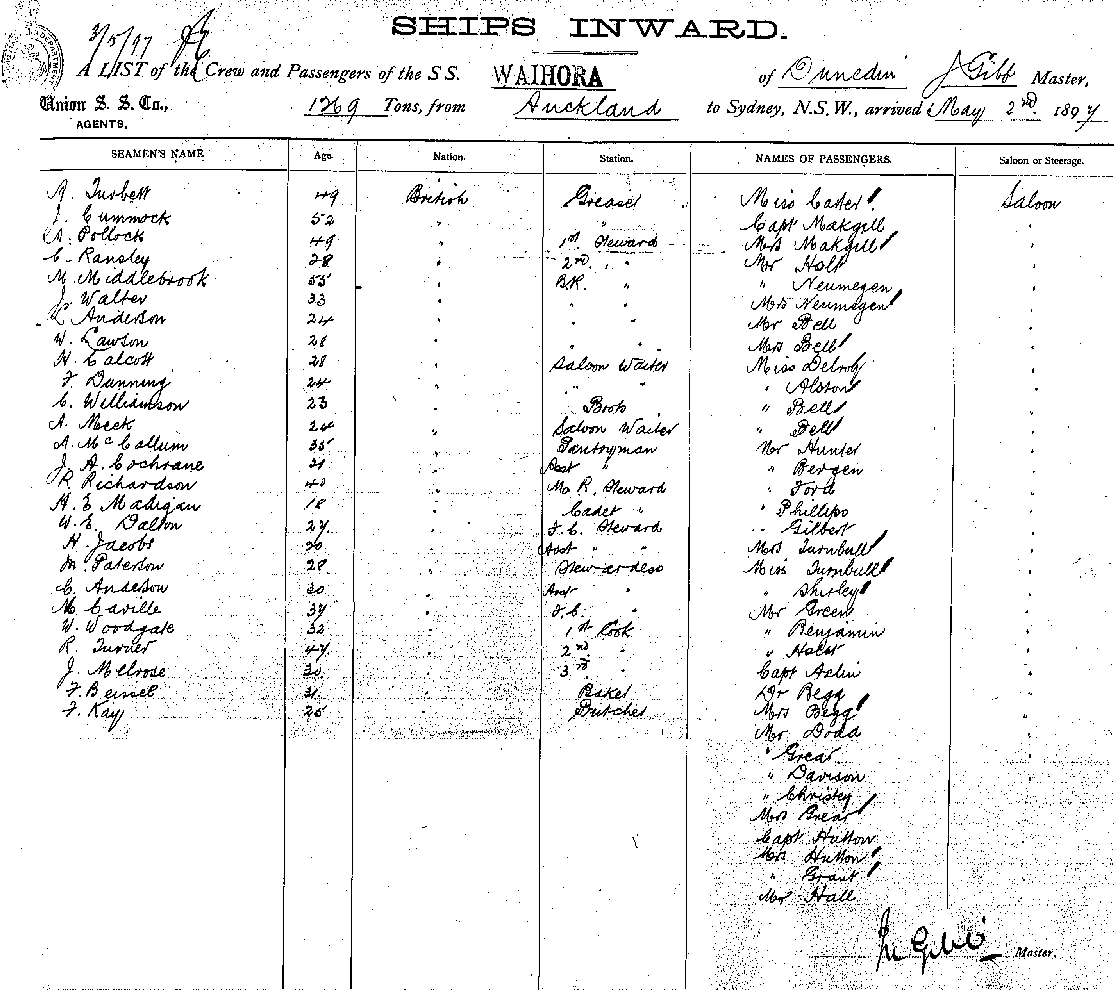 3/5/97
SHIPS INWARD.
A LIST of the Crew and Passengers of the S S. WAIHORA of Dunedin J Gibb Master,
Union S. S. Co., 1269 Tons, from Auckland to Sydney, N.S.W., arrived May 2nd. 1897
AGENTS,
SEAMEN'S NAME Age. Nation. Station. NAMES OF PASSENGERS. Saloon or Steerage.
49 British Greaser Miss Saloon
J. Cummock 52 " " Capt Makgill "
A. Pollock 49 " 1st Steward Mrs Makgill "
C. Ransley 28 " 2nd " Mr Holt "
M. Middlebrook 55 " B.R. " " Neumegen "
J. Walter 33 " " Mrs Neumegen "
L. Anderson 24 " " Mr Bell "
W. Lawson 28 " " Mrs Bell "
H. Calcott 28 " Saloon Waiter Miss "
F. Dunning 24 " " " " Alston "
C. Williamson 23 " Boots " Bell "
A. Meek 24 " Saloon Waiter " Bell "
A. McCallum 35 " Pantryman Mr Hunter "
J. A. Cochrane 21 " Asst " " Bergen "
R Richardson 40 " M. R. Steward " Ford "
H. E. Madigan 18 " Cadet " " Phillips "
W. E. Dalton 27 " F. C. Steward " Gilbert "
H. Jacobs 20 " Asst " " Mrs Turnbull "
M. Paterson 28 " Stewardess Miss Turnbull "
C. Anderson 30 " Asst " " Shirley "
M. Caville 34 " F. C. " Mr Green "
W. Woodgate 32 " 1st Cook " Benjamin "
R. Turner 47 " 2nd " " "
J. Melrose 30 " 3rd " Capt Aslin "
F. 31 " Baker Dr Begg "
F. Kay 25 " Butcher Mrs Begg "
Mr Dodd "
" Grear "
" Davison "
" Christey "
Mrs Grear "
Capt Hutton "
Mrs Hutton "
" Grant "
Mr Hall "
Gibb Master.